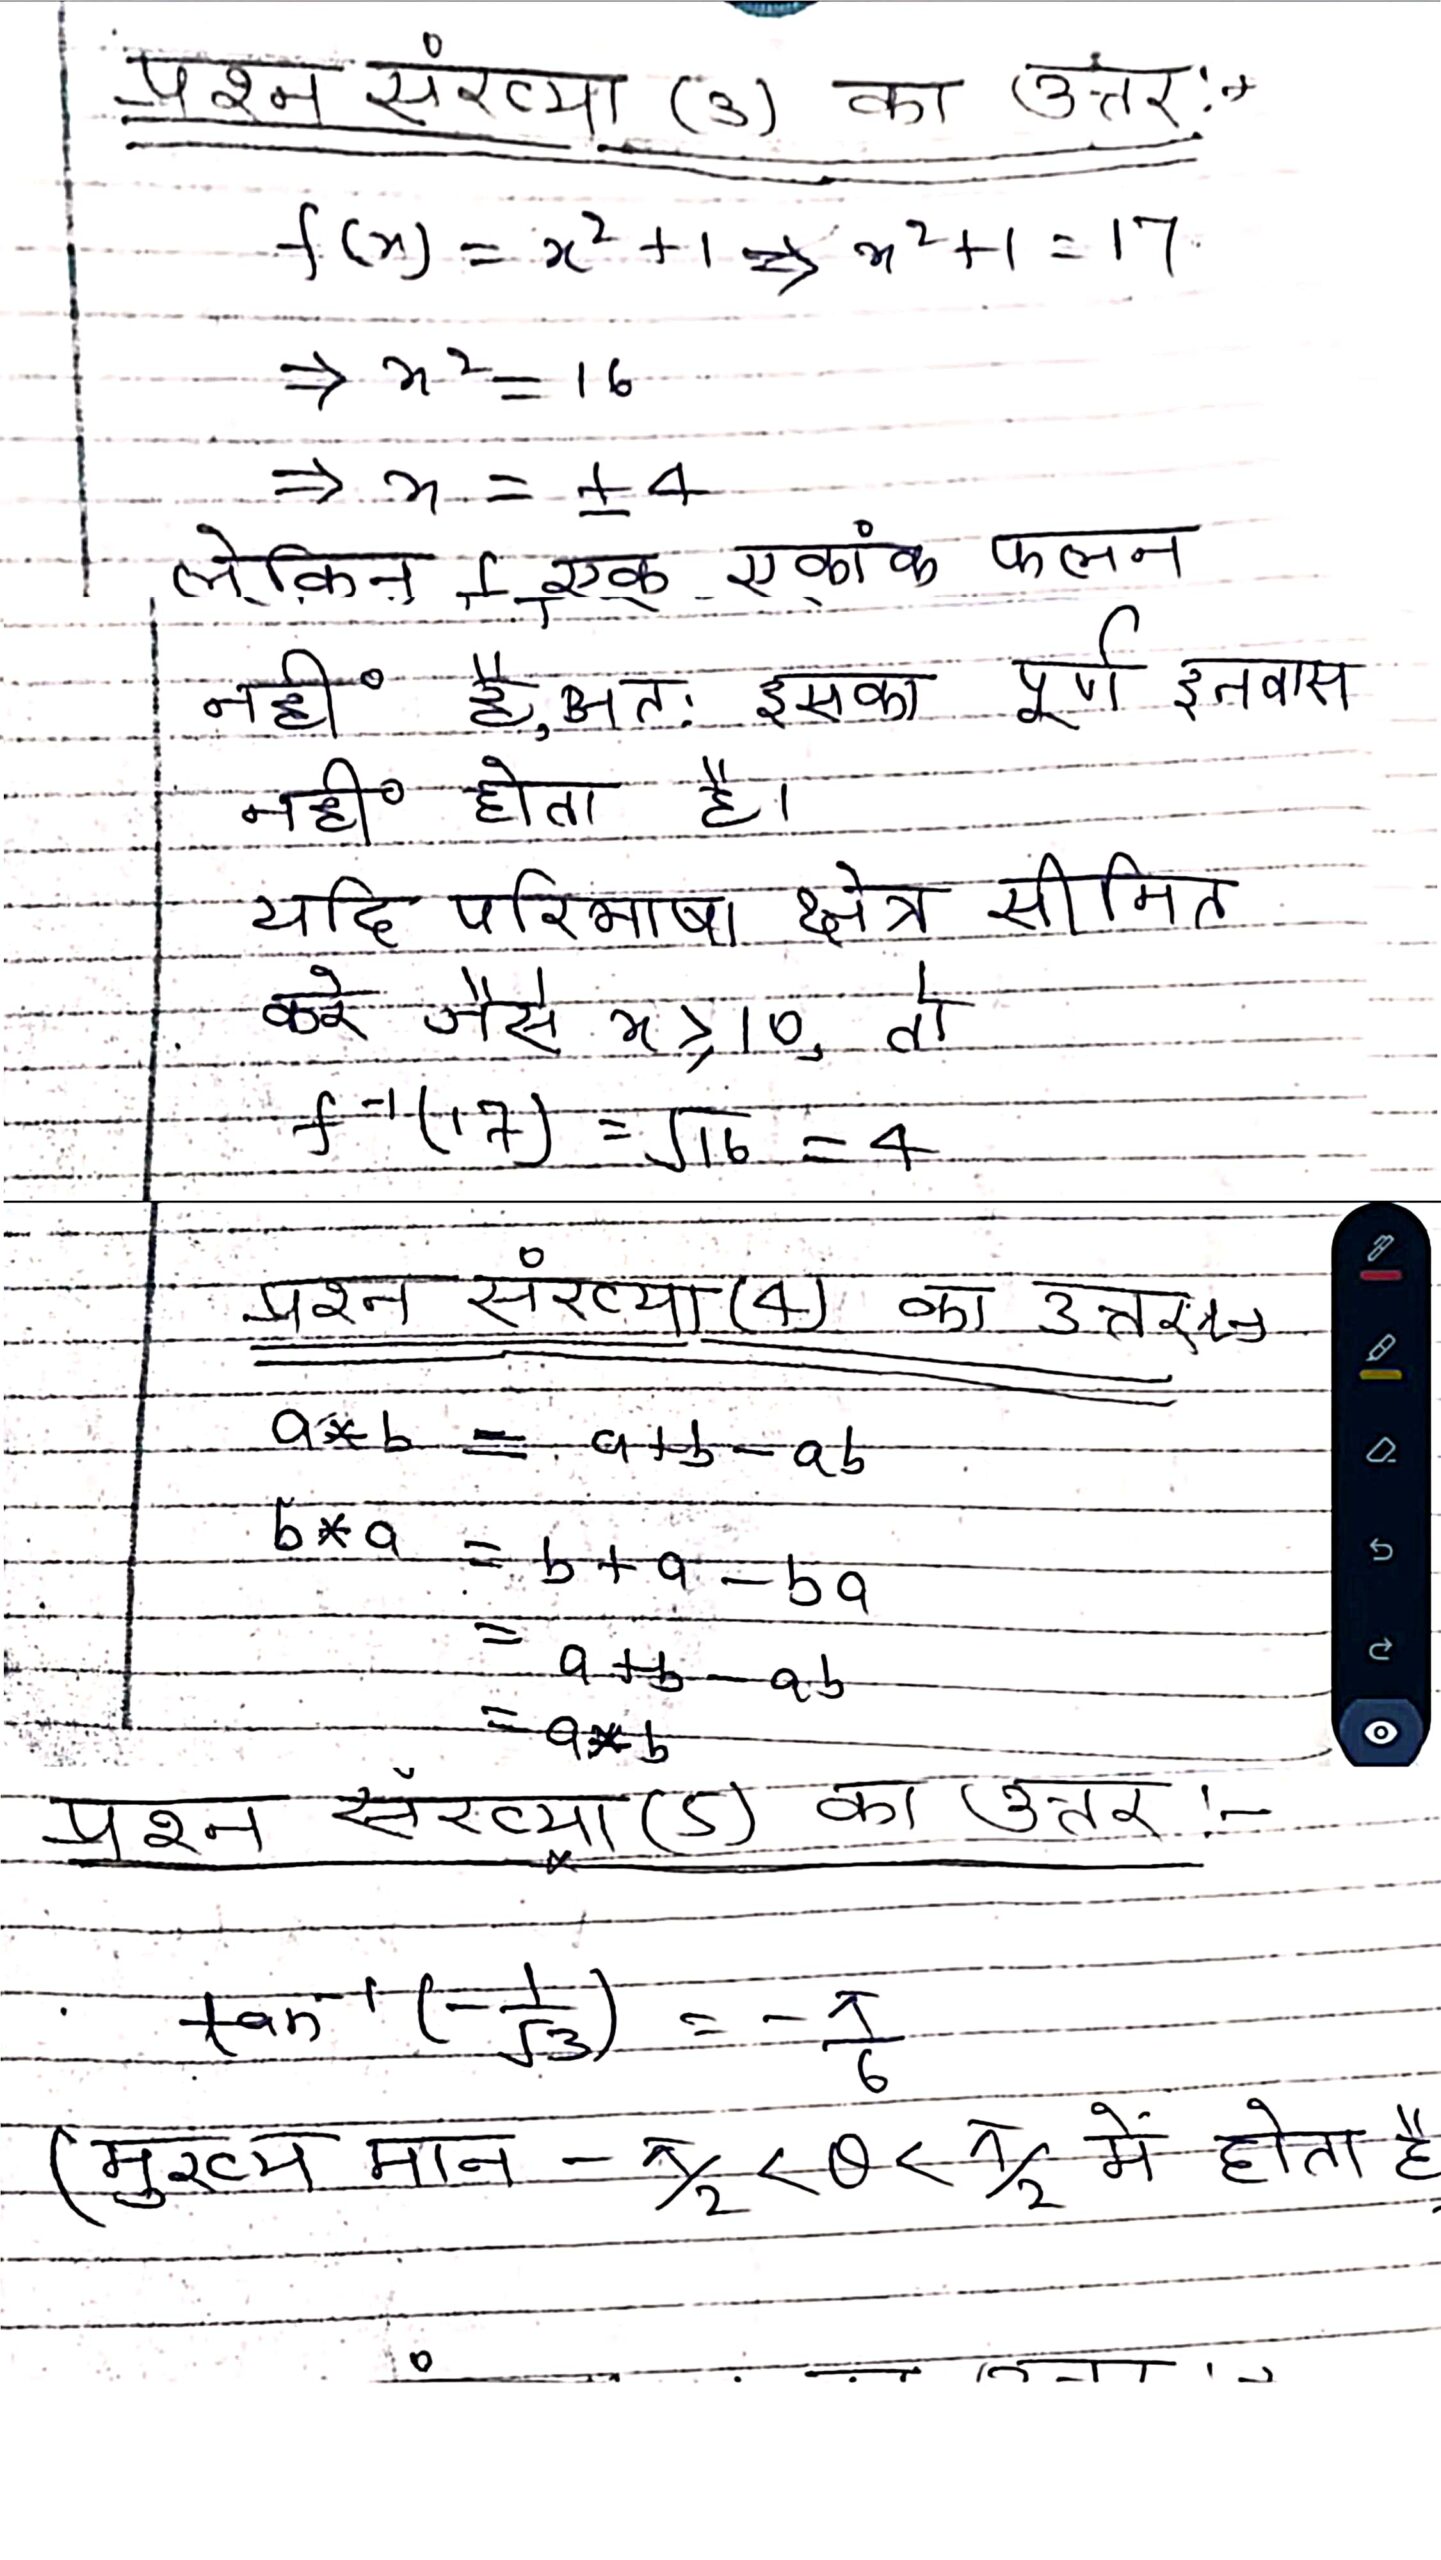 प्रश्न संख्या (3) का उत्तर :→
f(x) = x² + 1 ⇒ x² + 1 = 17
⇒ x² = 16
⇒ x = ± 4
लेकिन f एक एकांक फलन
नहीं है, अतः इसका पूर्ण इनवास
नहीं होता है।
यदि परिभाषा क्षेत्र सीमित
करे जैसे x ≥ 10, तो
f⁻¹(17) = √16 = 4
प्रश्न संख्या (4) का उत्तर :→
a * b = a + b - ab
b * a = b + a - ba
= a + b - ab
= a * b
प्रश्न संख्या (5) का उत्तर :-
tan⁻¹ (-1/√3) = -π/6
(मुख्य मान - π/2 < θ < π/2 में होता है